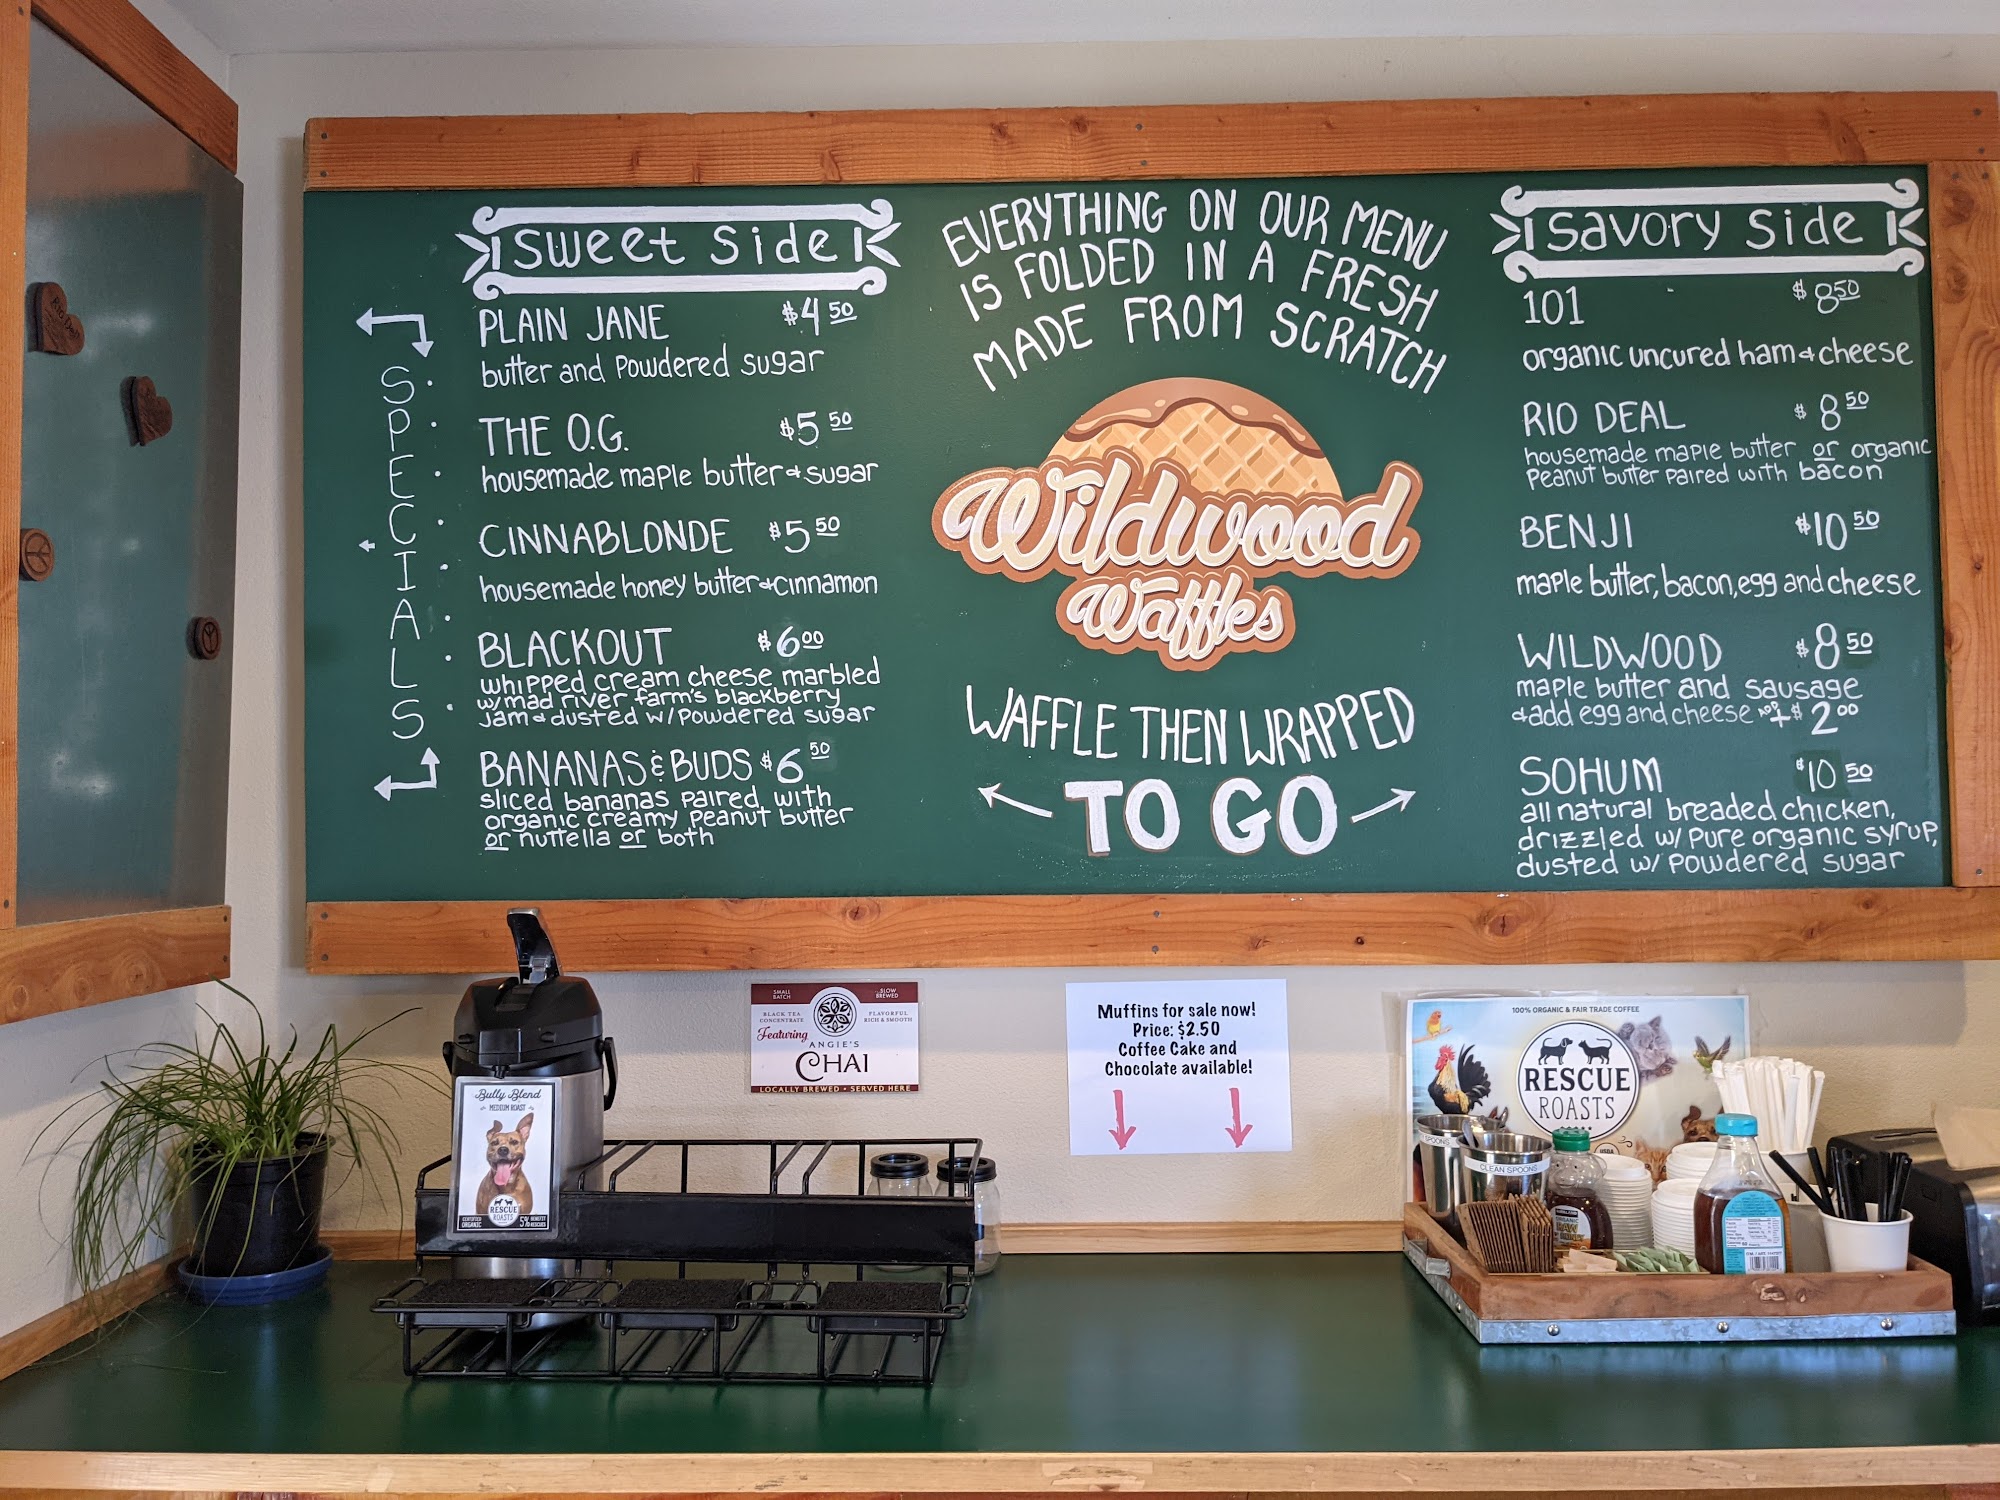 Sweet Side
PLAIN JANE $4 50
butter and Powdered sugar
THE O.G. $5 50
housemade maple butter & sugar
CINNABLONDE $5 50
housemade honey butter & cinnamon
BLACKOUT $6 00
whipped cream cheese marbled
w/ mad river farm's blackberry
Jam & dusted w/ Powdered sugar
BANANAS & BUDS $6 50
sliced bananas paired with
organic creamy Peanut butter
or nuttella or both
SPECIALS
EVERYTHING ON OUR MENU
IS FOLDED IN A FRESH
MADE FROM SCRATCH
Wildwood
Waffles
WAFFLE THEN WRAPPED
TO GO
Savory Side
101 $8 50
organic uncured ham & cheese
RIO DEAL $8 50
housemade maple butter or organic
Peanut butter Paired with bacon
BENJI $10 50
maple butter, bacon, egg and cheese
WILDWOOD $8 50
maple butter and sausage
& add egg and cheese + $2 00
SOHUM $10 50
all natural breaded chicken,
drizzled w/ Pure organic syrup,
dusted w/ Powdered sugar
Rio Dell
Bully Blend
MEDIUM ROAST
RESCUE
ROASTS
CERTIFIED
ORGANIC
5%
SMALL
BATCH
SLOW
BREWED
BLACK TEA
CONCENTRATE
FLAVORFUL
RICH & SMOOTH
Featuring
ANGIE'S
CHAI
LOCALLY BREWED • SERVED HERE
Muffins for sale now!
Price: $2.50
Coffee Cake and
Chocolate available!
100% ORGANIC & FAIR TRADE COFFEE
RESCUE
ROASTS
USDA
SPOONS
CLEAN SPOONS
ORGANIC
RAW